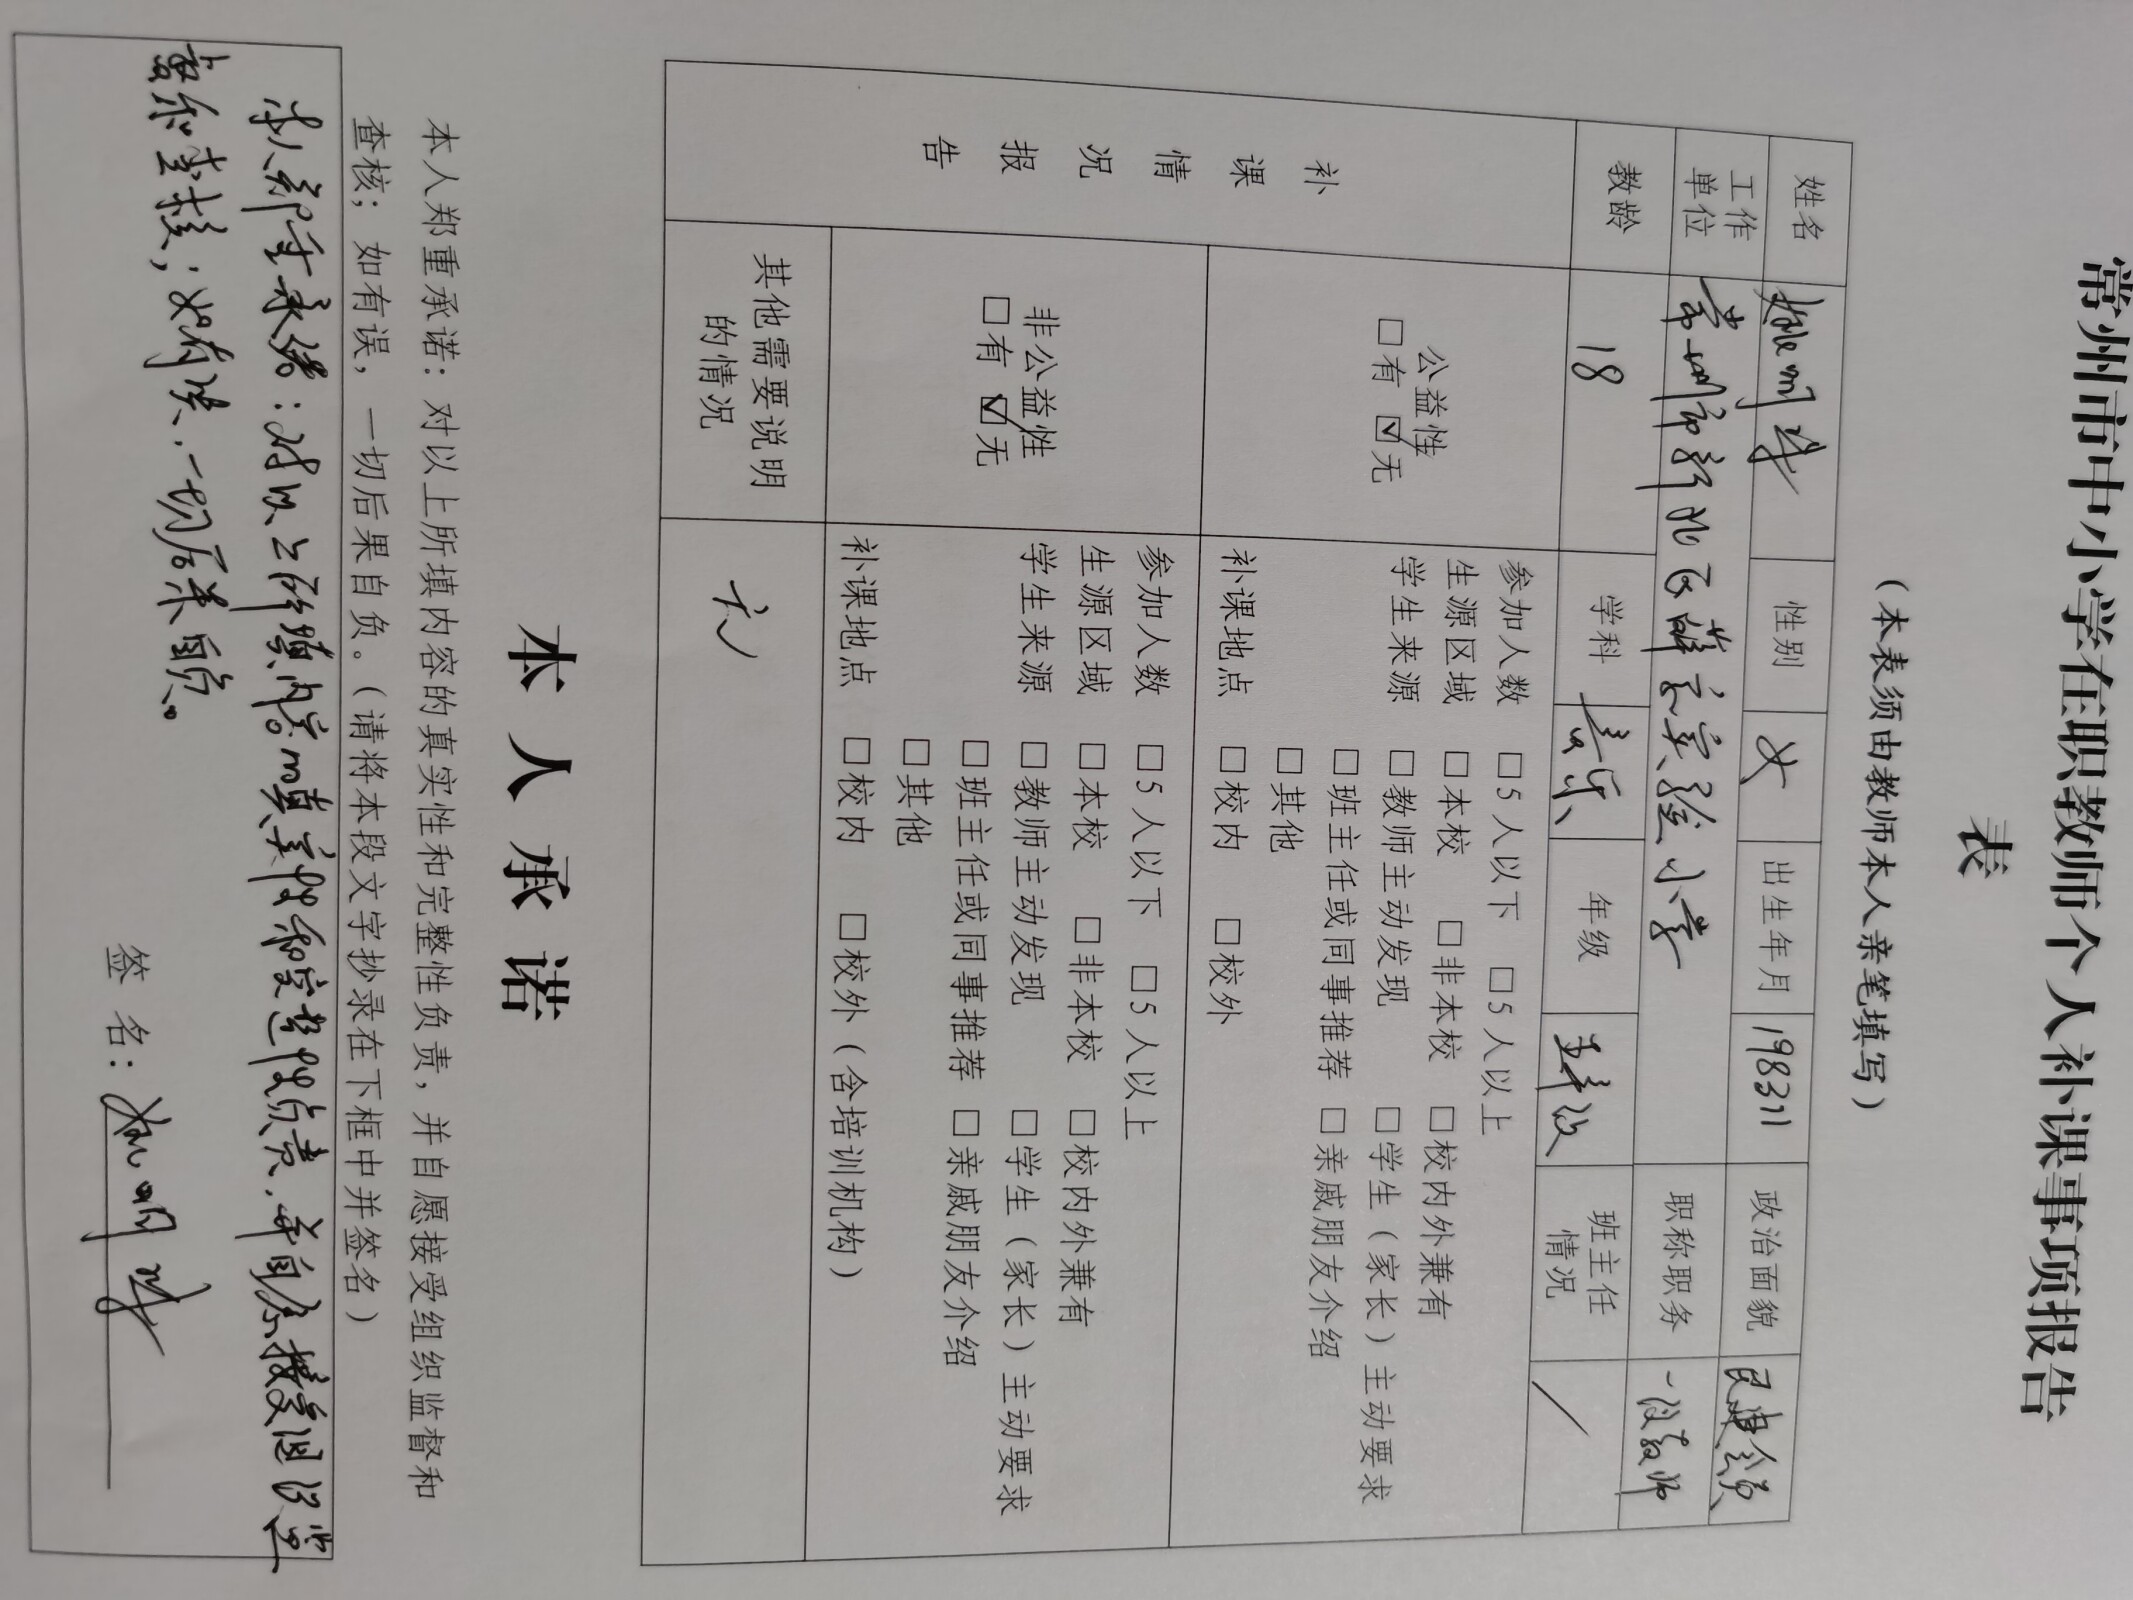 常州市中小学在职教师个人补课事项报告
表
（本表须由教师本人亲笔填写）
姓名 明 性别 女 出生年月 198311 政治面貌 民建会员
工作单位 常州市新北区薛家实验小学 职称职务 一级教师
教龄 18 学科 音乐 年级 五年级 班主任情况 /
补课情况报告
公益性
□有 ☑无
参加人数 □5人以下 □5人以上
生源区域 □本校 □非本校 □校内外兼有
学生来源 □教师主动发现 □学生（家长）主动要求
□班主任或同事推荐 □亲戚朋友介绍
□其他
补课地点 □校内 □校外
非公益性
□有 ☑无
参加人数 □5人以下 □5人以上
生源区域 □本校 □非本校 □校内外兼有
学生来源 □教师主动发现 □学生（家长）主动要求
□班主任或同事推荐 □亲戚朋友介绍
□其他
补课地点 □校内 □校外（含培训机构）
其他需要说明
的情况
无
本人承诺
本人郑重承诺：对以上所填内容的真实性和完整性负责，并自愿接受组织监督和
查核；如有误，一切后果自负。（请将本段文字抄录在下框中并签名）
本人郑重承诺：对以上所填内容的真实性和完整性负责，并自愿接受组织监
督和查核；如有误，一切后果自负。
签名： 明